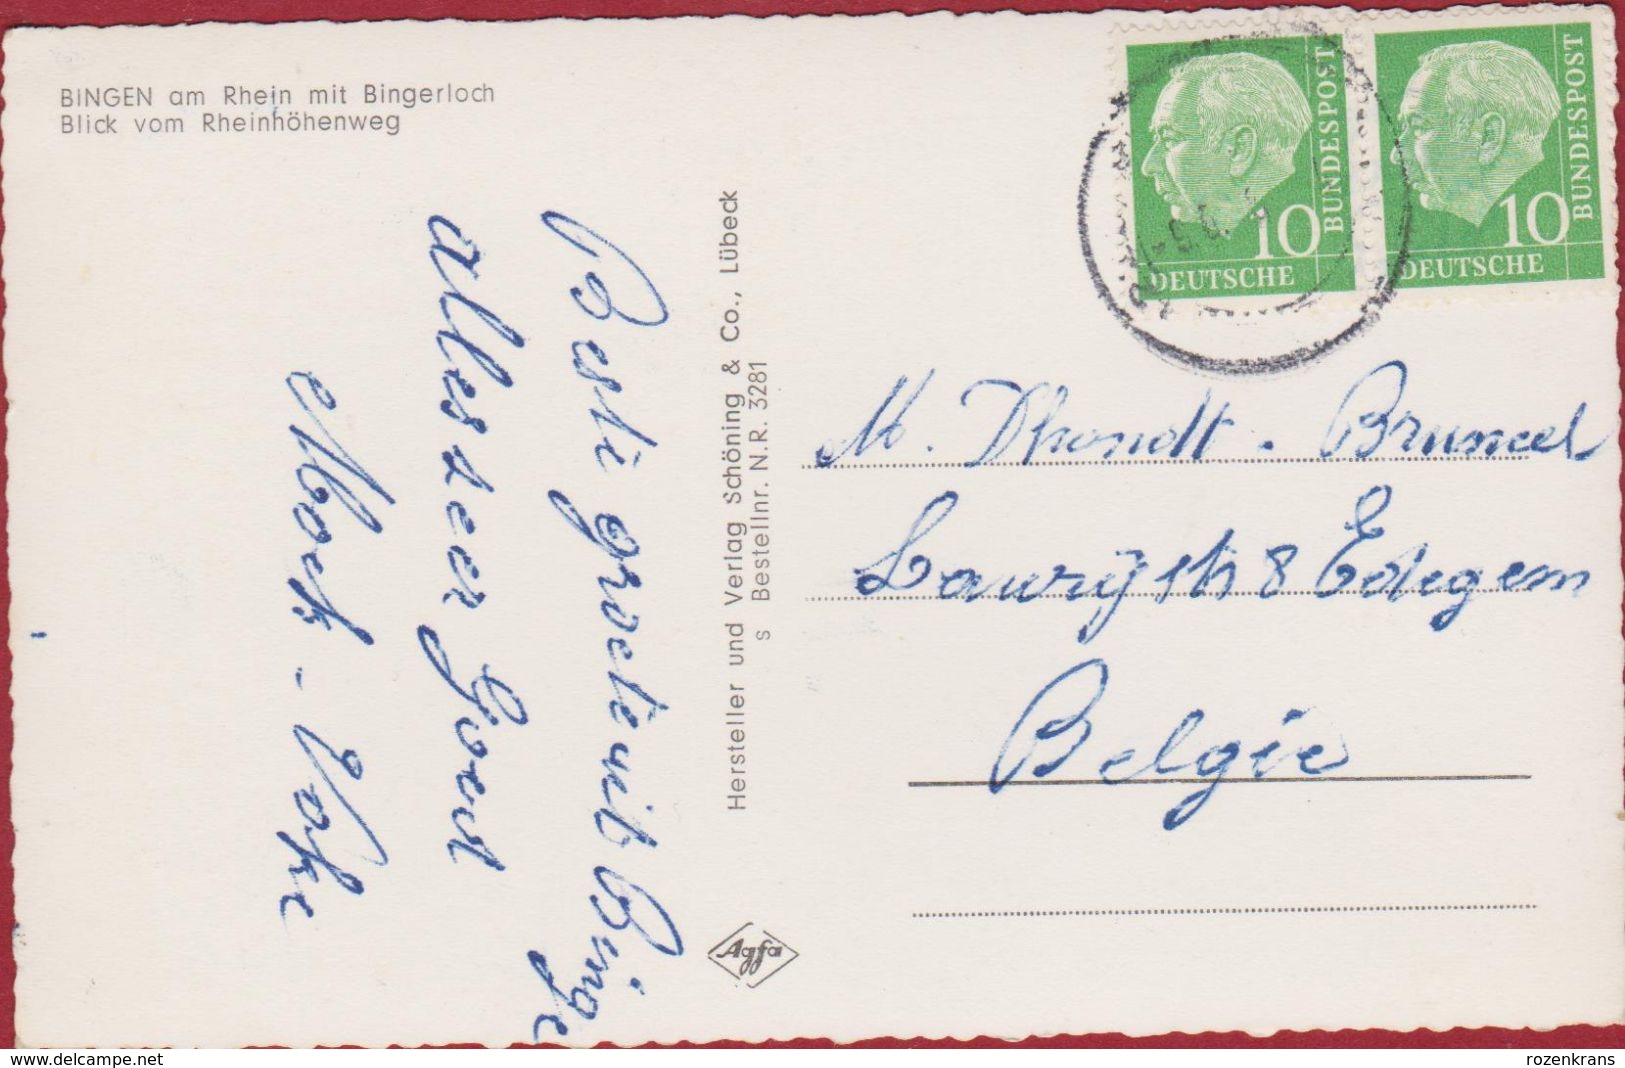 BINGEN am Rhein mit Bingerloch
Blick vom Rheinhöhenweg
Beste groeten uit Binge
alles zeer goed
Hersteller und Verlag Schöning & Co., Lübeck
s Bestellnr. N.R. 3281
Agfa
10
DEUTSCHE
BUNDESPOST
10
DEUTSCHE
BUNDESPOST
M. Dhondt - Bruneel
8 Edegem
Belgie
www.delcampe.net
rozenkrans